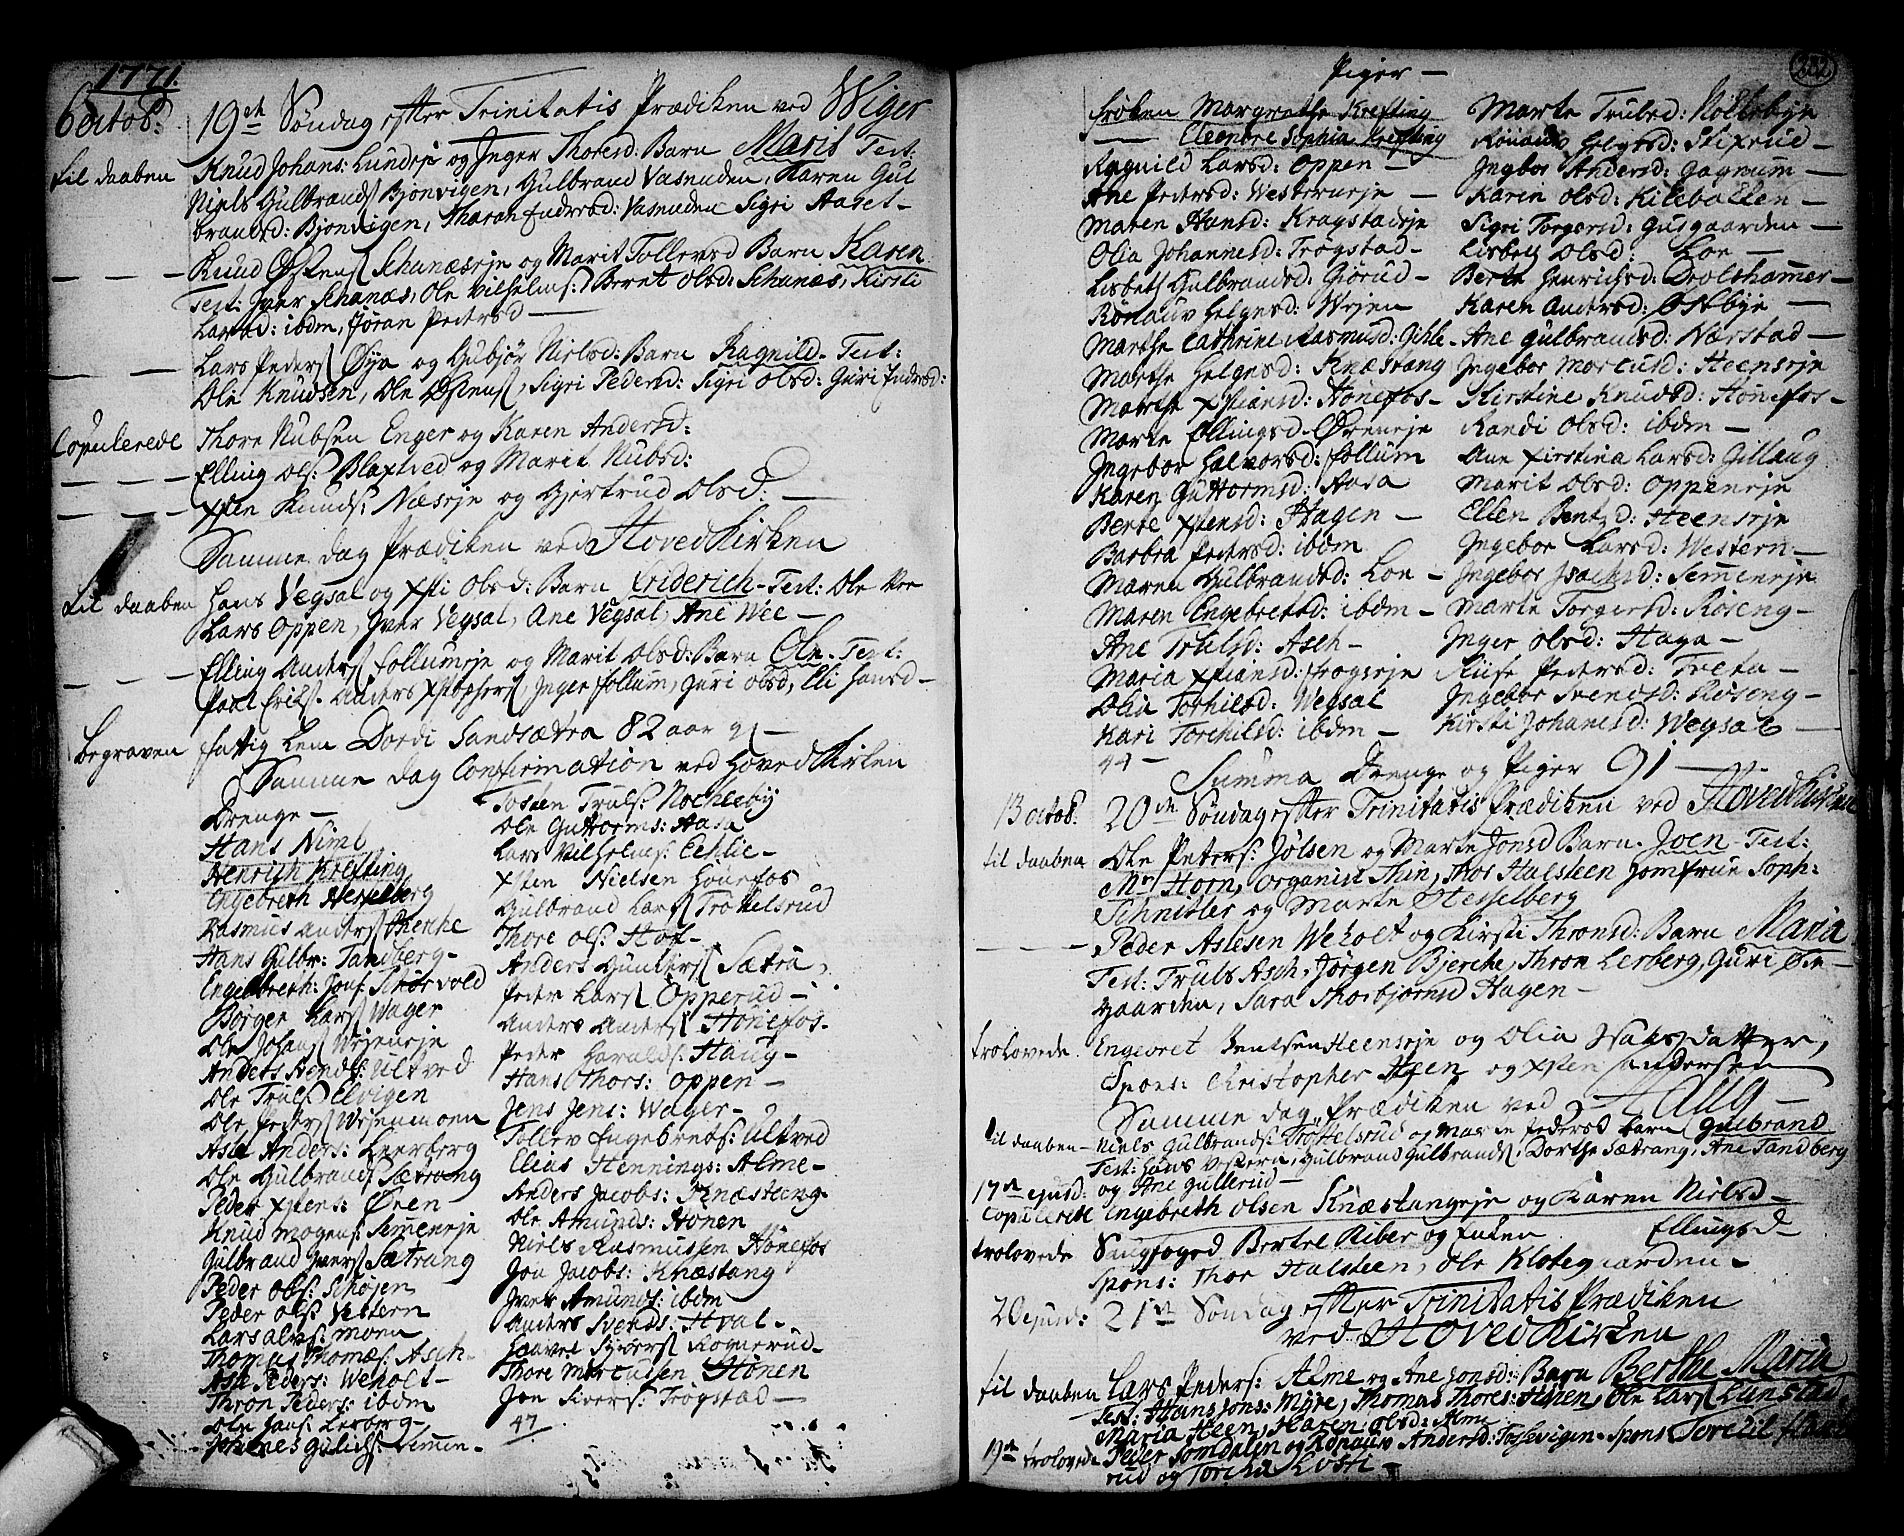 1771.
6 octob: 19de Søndag efter Trinitatis Prædiken ved Wiger
til daaben Knud Johans: Lundeje og Inger Thoresd: Barn Marit Test:
Niels Gulbrands Bjonvigen, Gulbrand Vasenden, Karen Gul
brandsd: Bjonvigen, Tharan Endresd: Vasenden Sigri Aaset-
— — — Knud Østens Schanæseje og Marit Tollevsd Barn Karen
Test: Iver Schanæs, Ole Vilhelms: Beret Olsd: Schanæs, Kirsti
Larsd: ibdm, Jøran Pedersd —
— — — Lars Peders Øya og Gubjør Nielsd: Barn Ragnild. Test:
Ole Knudsen, Ole Østens, Sigri Pedersd: Sigri Olsd: Guri Endresd:
Copulerede Thore Nubsen Enger og Karen Andersd:
— — — Elling Ols: Blaxtved og Marit Nubsd:
— — — Xsten Knuds: Næseje og Gjertrud Olsd: —
Samme dag Prædiken ved HovedKirken
til daaben Hans Vegsal og Xsti Olsd: Barn Friderich - Test: Ole Vee
Lars Oppen, Iver Vegsal, Ane Vegsal, Ane Wee —
— — — Elling Anders Follumeje og Marit Olsd: Barn Ole. Test:
Poul Eriks. Anders Xstophers, Inger Follum, Guri Olsd, Elli Hansd —
begraven fattig Lem Dordi Sandsætra 82 aar gl —
Samme dag Confirmation ved HovedKirken
Drenge —
Hans Niml
Henrich Krefting
Engebreth Hesselberg
Rasmus Anders Bherche
Hans Gulbr: Tandberg -
Engelbreth: Jons Schørvold
Børger Lars Wager
Ole Johans Wejeneje
Anders Arends: Ultved
Ole Truls Elvigen
Ole Peders Wejenmoen
Asle Anders: Leerberg
Ole Gulbrands Sætrang
Peder Xstens: Øren
Knud Mogens: Semmeneje
Gulbrand Ivers Sætrang
Peder Ols: Schøjen
Peder Ols: Vestern
Lars Alvs: moen
Thomas Thomæs: Asch -
Asle Peders: Weholt -
Thron Peders: ibdm
Ole Jans: Lerberg -
Johannes Gulichs Semmen -
Tosten Truls: Nochleby
Ole Guttorms: Aasa
Lars Vilhelms: Echlie -
Xsten Nielsen Hønefos
Gulbrand Lars Trøtelsrud
Thore Ols: Hof -
Anders Gunders Sætra,
Peder Lars Opperud —
Anders Anders Hønefos -
Peder Haralds: Haug -
Hans Thors: Oppen —
Jens Jens: Wager -
Tollev Engebrets: Ultved
Elias Hennings: Alme -
Anders Jacobs: Knæstang
Ole Amunds: Hønen
Niels Rasmussen Hønefos
Jon Jacobs: Knæstang
Iver Amunds: ibdm
Anders Svends: Hval -
Haavel Syvers Rognerud -
Thore Marcussen Hønen
Jon Sivers: Trøgstad —
47
Piger —
232
Frøken Margrethe Krefting
— Eleonore Sophia Krefting
Ragnild Larsd: Oppen —
Ane Pedersd: Westerneje —
Maren Hansd: Kragstadeje
Olia Johannesd: Trøgstad -
Lisbeth Gulbrandsd: Giørud -
Rønauv Helgesd: Wejen
Marthe Cathrine Rasmusd: Gihle -
Marthe Helgesd: Knæstang
Marthe Xstiansd: Hønefos -
Marte Ellingsd. Øreneje
Ingebor Halvorsd: Follum
Karen Guttormsd: Aasa
Berte Xstensd: Hagen —
Barbra Pedersd: ibdm
Maren Gulbrandsd: Loe —
Maren Engebretsd: ibdm —
Ane Trulsd: Asch -
Maria Xstiansd: Frogeje —
Olia Torkilsd: Vegsal
Kari Torchilsd: ibdm —
44 —
Marte Trulsd: Nøklebye
Rønauv Helgesd: Stixrud —
Ingebor Andersd: Gagnum —
Karin Olsd: Kilebakken —
Sigri Torgersd: Gusgaarden —
Lisbeth Olsd: Loe —
Berte Henrichsd: Drolshammer —
Karen Andersd: Østbye —
Ane Gulbrandsd: Nærstad —
Ingebor Marcusd: Heenseje
Kirstine Knudsd: Hønefos —
Randi Olsd: ibdm —
Ane Kirstina Larsd: Gillaug
Marit Olsd: Oppeneje
Ellen Bentsd: Heenseje
Ingebor Larsd: Western —
Ingebor Isachsd: Semmeneje
Marte Torgersd: Røseng -
Inger Olsd: Haga —
Siise Pedersd: Treta —
Ingebor Svendsd: Røseng -
Kirsti Johannesd: Wegsal
Summa Drenge og Piger 91 —
13 octob. 20de Søndag efter Trinitatis Prædiken ved HovedKirken
til daaben Ole Peters: Jølsen og Marte Jonsd Barn. Joen - Test:
Mr Horn, Organist Thin, Thor Halsteen Jomfrue Soph:
Schnitler og Marte Hesselberg
— — — Peder Aslesen Weholt og Kirsti Thronsd: Barn Maria
Test: Truls Asch, Jørgen Bjerche, Thron Lerberg, Guri Øde-
gaarden, Sara Thorbjørnsd Hagen —
trolovede Engebret Bentsen Heenseje og Olia Isaksdatter,
Spons: Christopher Heen og Xsten Andersen
Samme dag Prædiken ved Haug —
til daaben — Niels Gulbrands: Trøttelsrud og Maren Pedersd Barn Gulbrand
Test: Hans Vestern, Gulbrand Gulbrands, Dorthe Sætrang, Ane Tandberg
og Ane Gullerud —
17de ejusd: Copulerede Engebreth Olsen Knæstangeje og Karen Nielsd —
trolovede Saugfoged Bertel Riber og Enken Ellingsd —
Spons: Thor Halsteen, Ole Klokegaarden —
20 ejusd: 21de Søndag efter Trinitatis Prædiken
ved HovedKirken
til daaben Lars Peders: Alme og Ane Jonsd: Barn Berthe Maria
Test: Hans Jons: Myre, Thomas Thores: Hønen, Ole Lars Lunstad
Maria Heen, Karen Olsd: Alme
19de trolovede Peder Somdalen og Rønauv Andersd: Tossevigen - Spons
rud og Torchil